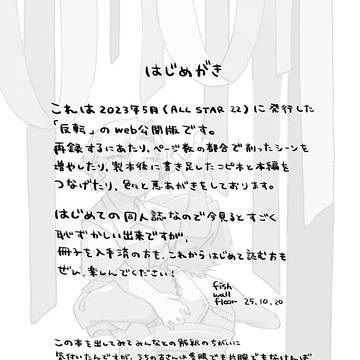 はじめがき
これは2023年5月(ALL STAR 22)に発行した
「反転」のweb公開版です。
再録するにあたり、ページ数の都合で削ったシーンを
増やしたり、製本後に書き足したコピ本と本編を
つなげたり、色々と悪あがきをしております。
はじめての同人誌なので今見るとすごく
恥ずかしい出来ですが、
冊子を入手済の方も、これからはじめて読む方も
ぜひ、楽しんでください!
fish
wall
floor 25.10.20
この本を出してみてみんなとの解釈のちがいに
気付いたんですが、うちの